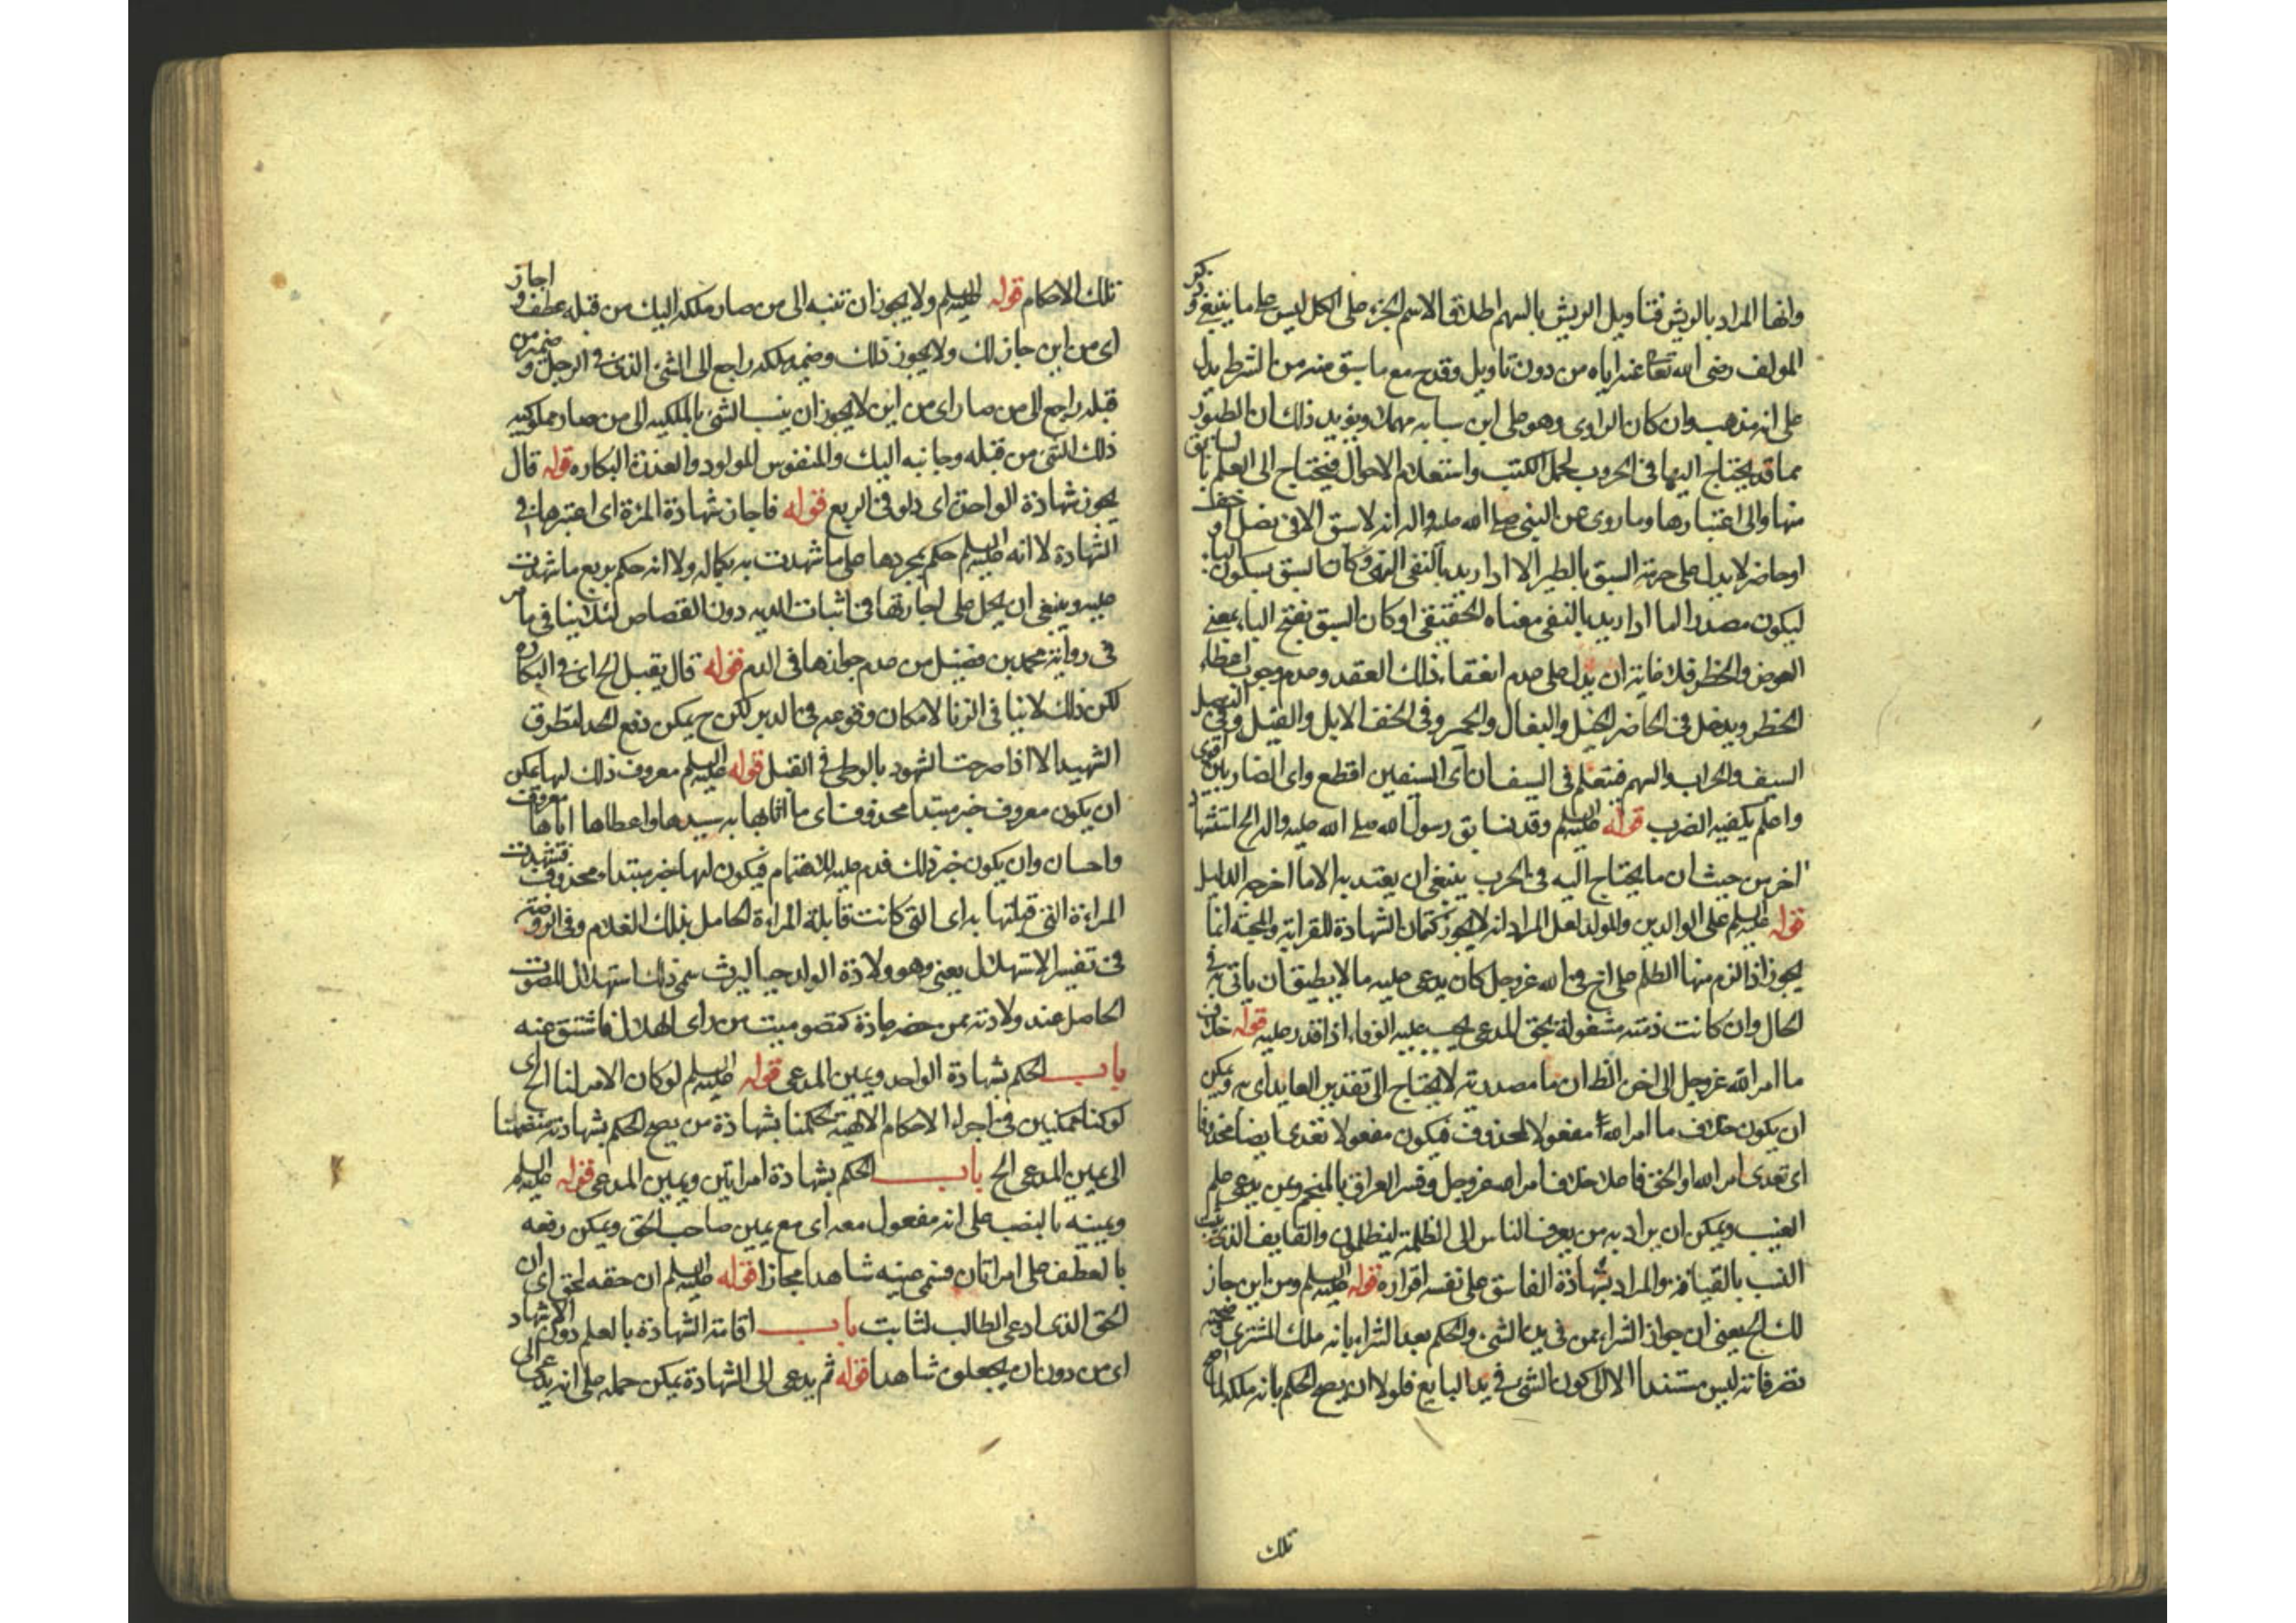 وانما المراد بالريش فتاويل الريش بالسهم اطلاق الاسم الجزء على الكل ليس على ما ينبغي وذكر
المولف رضى الله تعالى عنه اياه من دون تاويل وقدح مع ما سبق منه من الشرط يدل
على انه مذهبه وان كان الراوى وهو على ابن سبابه مهملا ويؤيد ذلك ان الطيور
مما قد يحتاج اليها فى الحروب لحمل الكتب واستعلام الاحوال فيحتاج الى العلم بالسابق
منها والى اعتبارها وما روى عن النبى صلى الله عليه واله انه لا سبق الا فى نصل او خف
او حافر لا يدل على حرمة السبق بالطير الا اذا اريد بالنفى النهى وكان السبق بسكون الباء
ليكون مصدرا اما اذا اريد بالنفى معناه الحقيقى او كان السبق بفتح الباء بمعنى
العوض والخطر فلا فانه ان يدل على عدم انعقاد ذلك العقد وعدم وجوب اعطاء
الخطر ويدخل فى الحافر الخيل والبغال والحمير وفى الخف الابل والفيل وفى النصل
السيف والحراب والسهم فيتعلم فى السيف ان اى السيفين اقطع واى الضاربين اقوى
واعلم بكيفية الضرب قوله عليه السلم وقد سابق رسول الله صلى الله عليه واله الخ استشهاد
اخر من حيث ان ما يحتاج اليه فى الحرب ينبغى ان يعتد به الا ما اخرجه الدليل
قوله عليه السلم على الوالدين والولد لعل المراد انه لا يجوز كتمان الشهادة للقرابة والمحبة انما
يجوز اذا لزم منها الظلم على اخ فى الله عز وجل كان يدعى عليه ما لا يطيق ان ياتى به فى
الحال وان كانت ذمته مشغولة بحق المدعى يجب عليه الوفاء اذا قدر عليه قوله خلاف
ما امر الله عز وجل الى اخره الظ ان ما مصدرية لا يحتاج الى تقدير العايد اى به ويمكن
ان يكون خلاف ما امر الله مفعولا لمحذوف فيكون مفعولا تعدى ايضا محذوفا
اى تعدى امر الله والحق فاعلا خلاف امر الله عز وجل وفسر العراف بالمنجم ومن يدعى علم
الغيب ويمكن ان يراد به من يعرف الناس الى الظلمة ليظلموا والقايف الذى
النسب بالقيافة والمراد بشهادة الفاسق على نفسه اقراره قوله عليه السلم ومن اين جاز
لك الخ يعنى ان جواز الشراء ممن فى يده الشىء والحكم بعد الشراء بانه ملك المشترى
تصرفاته ليس مستندا الا الى كون الشىء فى يد البايع فلولا ان يصح الحكم بانه ملكه لما
تلك
تلك الاحكام قوله عليه السلم ولا يجوز ان تنسبه الى من صار ملكه اليك من قبله عطف و اجاز
اى من اين جاز لك ولا يجوز ذلك وضمير ملكه راجع الى الشىء الذى فى الرجل وضمير من
قبله راجع الى من صار اى من اين لا يجوز ان ينسب الشىء بالملكيه الى من صار مملوكيه
ذلك الشىء من قبله وجانبه اليك والمنفوس المولود والعذرة البكاره قوله قال
يجوز شهادة الواحدة اى ولو فى الربع قوله فاجاز شهادة المرءة اى اعتبرها فى
الشهادة لا انه عليه السلم حكم بمجردها على ما شهدت به بكماله ولا انه حكم بربع ما شهدت
عليه وينبغى ان يحمل على اجازتها فى اثبات الديه دون القصاص لئلا ينافى ما مر
فى رواية محمد بن فضيل من عدم جوازها فى الدم قوله قال يقبل الخ اى فى البكاره
لكن ذلك لا ينافى الزنا لامكان وقوعه فى الدبر لكن ح يمكن دفع الحد لتطرق
الشهبه الا اذا صرحت الشهود بالوطى فى القبل قوله عليه السلم معروف ذلك لها يمكن
ان يكون معروف خبر مبتدا محذوف اى ما اثابها به سيدها واعطاها اياها معروف
واحسان وان يكون خبر ذلك قدم عليه للاهتمام فيكون لها خبر مبتداء محذوف قوله فشهدت
المراءة التى قبلتها به اى التى كانت قابلة المراءة الحامل بذلك الغلام وفى الروضة
فى تفسير الاستهلال يعنى وهو ولادة الولد حيا ليرث سمى ذلك استهلالا للصوت
الحاصل عند ولادته ممن حضر عادة كتصويت من راى الهلال فاشتق منه
باب الحكم بشهادة الواحد ويمين المدعى قوله عليه السلم لو كان الامر لنا الخ اى
لو كنا متمكنين فى اجراء الاحكام الالهية لحكمنا بشهادة من يصح الحكم بشهادته منضمتا
الى يمين المدعى الخ باب الحكم بشهادة امراتين ويمين المدعى قوله عليه السلم
ويمينه بالنصب على انه مفعول معه اى مع يمين صاحب الحق ويمكن رفعه
بالعطف على امراتان فسمى يمينه شاهدا مجازا قوله عليه السلم ان حقه لحق اى ان
الحق الذى ادعى الطالب لثابت باب اقامة الشهادة بالعلم دون الاشهاد
اى من دون ان يجعلوه شاهدا قوله ثم يدعى الى الشهادة يمكن حمله على انه يدعى الى